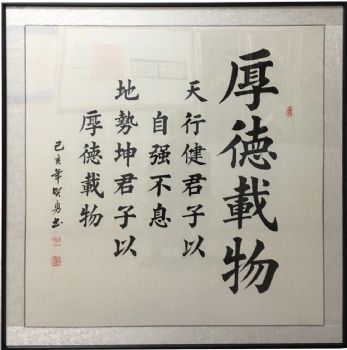 厚德載物
天行健君子以
自强不息
地勢坤君子以
厚德載物
己亥年